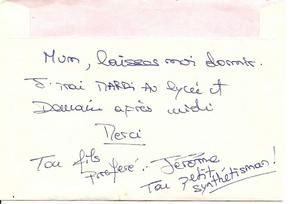 Mum, laissez moi dormir.
J'irai MARDI AU lycée et
Demain après midi
Merci
Ton fils
Preferé.. Jérôme
Ton petit
synthétisman!